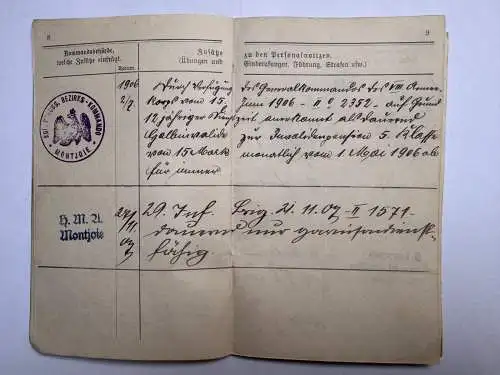 8
9
Kommandobehörde, welche Zusätze einträgt.
Datum.
Zusätze zu den Personalnotizen.
(Übungen und Einberufungen, Führung, Strafen usw.)
KÖN. PREUSS. BEZIRKS-KOMMANDO
* MONTJOIE *
1906
2/7
Durch Verfügung des Generalkommandos des VIII Armee-
korps vom 15. Juni 1906 - II c 2352 - auf Grund
12 jähriger Dienstzeit anerkannt als dauernd
Halbinvalide zur Invalidenpension 5. Klasse
von 15 Mark monatlich vom 1 Mai 1906 ab
für immer
H. M. A.
Montjoie
27/11
07
29. Inf. Brig. 21.11.07 - II 1571 -
dauernd nur garnisondienst-
fähig.